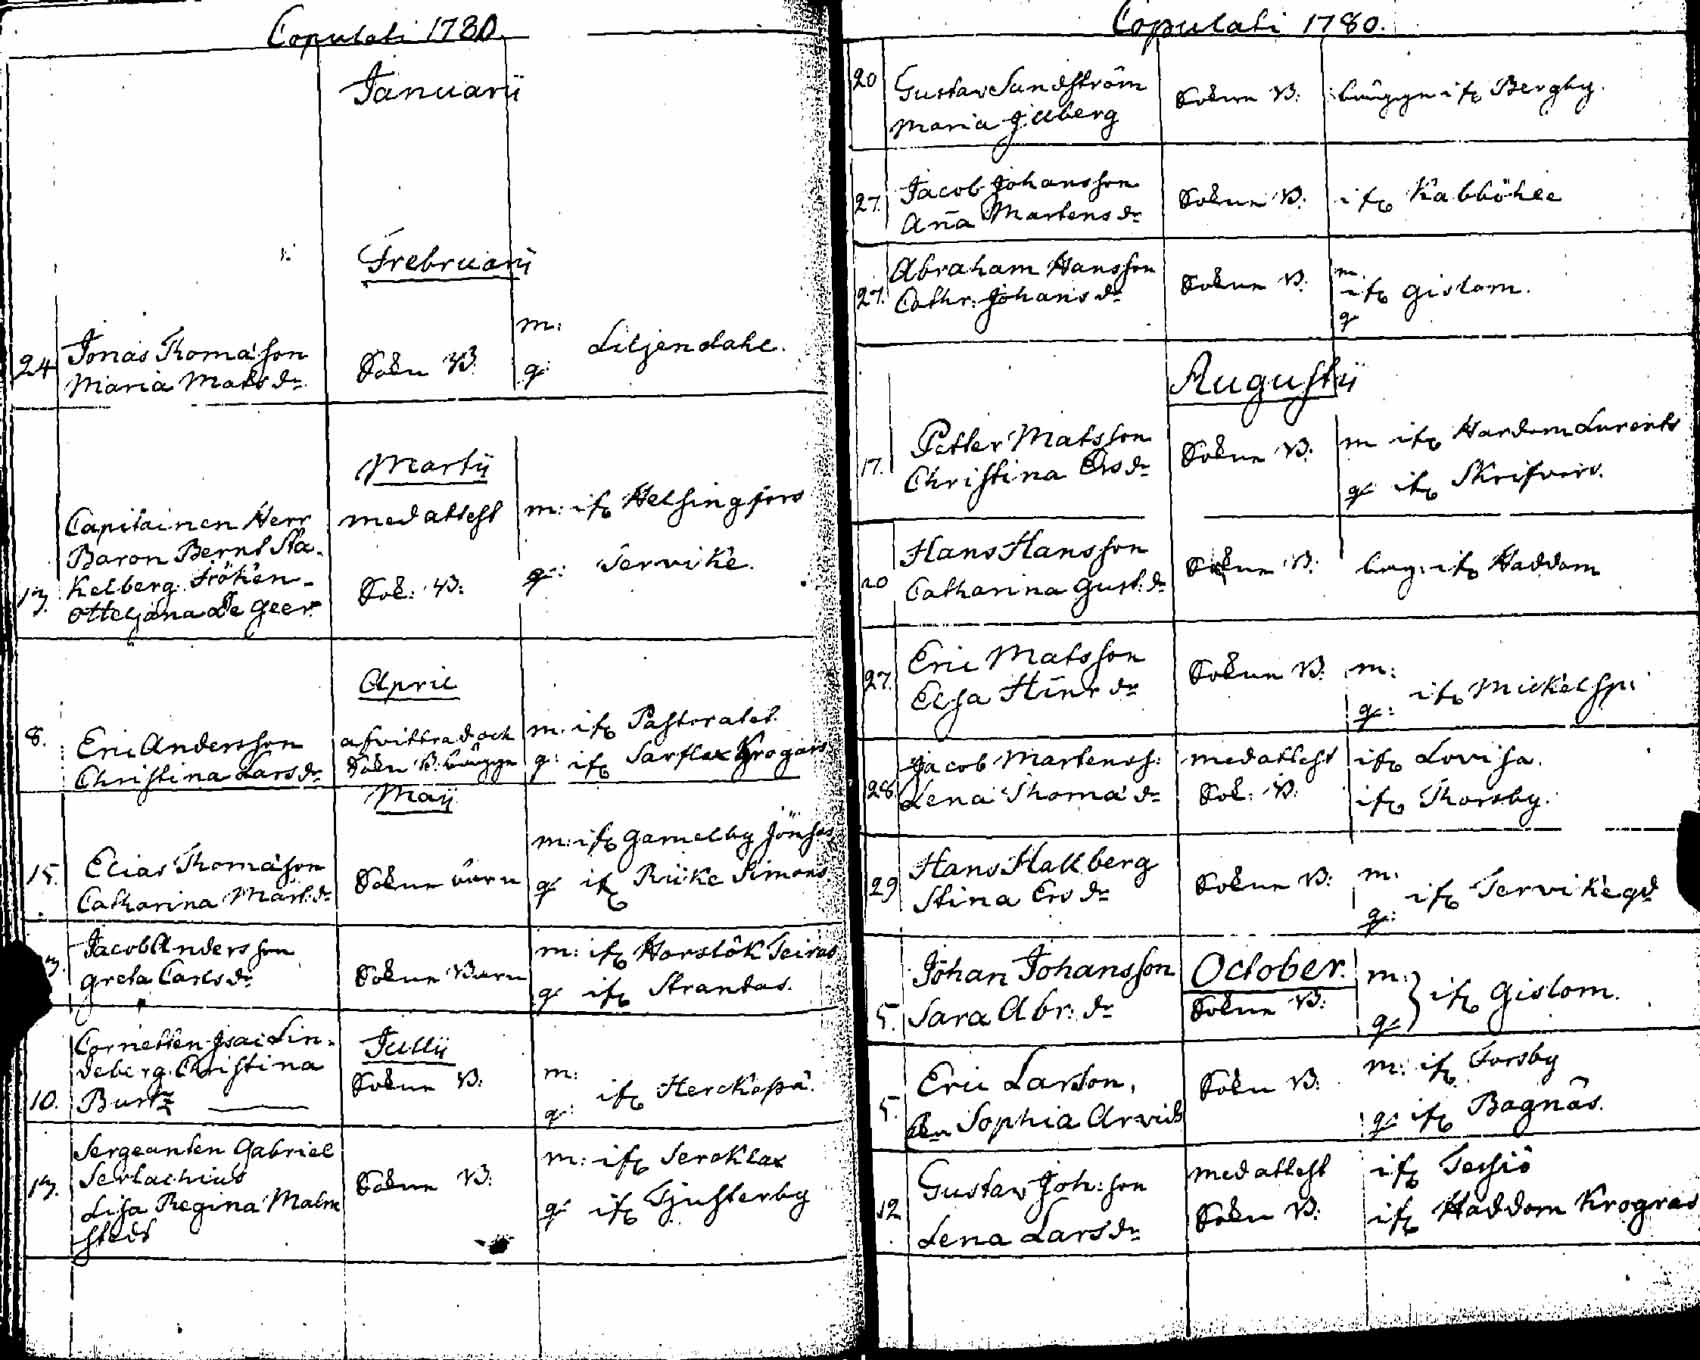 Copulati 1780.
Januarii
Frebruarii
24 Jonas Thomasson
Maria Mats dr
Sokn B.
m:
q: Liljendahl.
Martii
Capitainen Herr
Baron Bernt Sta-
kelberg. Fröken-
17. Otteljana De Geer.
med attest
Sok: B:
m: ifr Helsingfors
q: Tervike.
April
8. Eric Andersson
Christina Lars dr
afvittrad och
Sokn B: bägge
m: ifr Pastoratet.
q: ifr Sarflax Krogars
Maij
15. Elias Thomasson
Catharina Mårt: dr
Soknebarn
m: ifr Gamelby Jönsas
q: ifr Rücke Simons
Jacob Andersson
Greta Carls dr
Sokne Barn
m: ifr Horslök Teiras
q: ifr Strandas.
Julii
Cornetten Isac Lin-
deberg. Christina
10. Burtz
Sokne B:
m:
q: ifr Herckapä.
Sergeanten Gabriel
Serlachius
17. Lisa Regina Malm
stedt
Sokne B:
m: ifr Sercklax
q: ifr Tjusterby
Copulati 1780.
20 Gustav Sundström
Maria Gilberg
Sokne B: bägge ifr Bergby.
27. Jacob Johansson
Aña Martens dr
Sokne B: ifr Kabböhle
27. Abraham Hansson
Cathr: Johans dr
Sokne B:
m
ifr Gislom.
q
Augustii
17. Petter Matsson
Christina Ers dr
Sokne B:
m ifr Hardom Lurents
q: ifr Skrifvars.
20 Hans Hansson
Catharina Gust: dr
Sokne B: bäg: ifr Haddom
27. Eric Matsson
Elsa Hinr dr
Sokne B:
m:
q: ifr Mickelsp:
28. Jacob Martenss:
Lena Thomá dr
med attest
Sok: B:
ifr Lovisa.
ifr Thorsby.
29 Hans Hallberg
Stina Ers dr
Sokne B:
m:
q: ifr Tervike gd
October.
5. Johan Johansson
Sara Abr: dr
Sokne B:
m:
q: ifr Gislom.
5. Eric Larson,
Sophia Arvids
Sokn B:
m: ifr Torsby
q: ifr Bagnäs.
12 Gustav Joh: son
Lena Lars dr
med attest
Sokn B:
ifr Tessiö
ifr Haddom Krogras